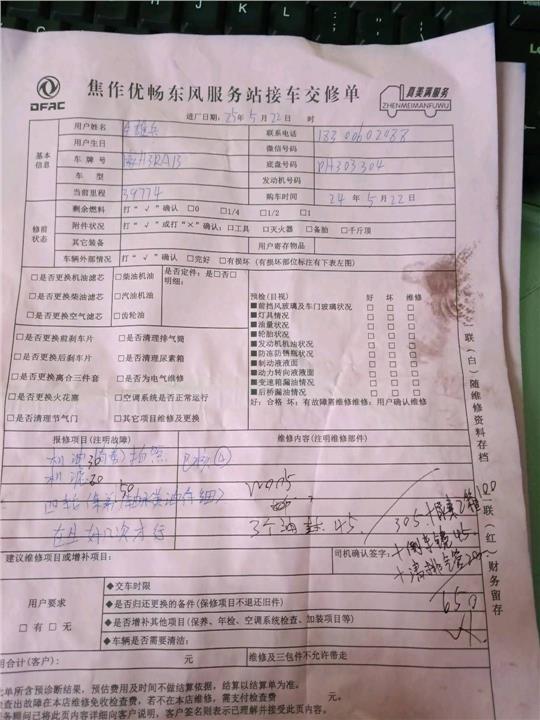 DFAC
焦作优畅东风服务站接车交修单
真美满服务
ZHENMEIMANFUWU
进厂日期: 25年 5月 22日 时
基本信息
用户姓名
联系电话
用户生日
微信号码
车 牌 号
底盘号码 PH303304
车 型
发动机号码
当前里程 39774
购车时间 24 年 5 月 22
修前状态
剩余燃料 打“√”确认 □0 □1/4 □1/2 □1
附件状况 打“√”或打“×”确认: □工具 □灭火器 □备胎 □千斤顶
其它装备
用户寄存物品
车辆外部情况 打“√”确认 □完好 □有损坏 (有损坏部位标注有下表左图)
□是否更换机油滤芯 □柴油机油
□是否更换柴油滤芯 □汽油机油
□是否更换空气滤芯 □齿轮油
是否定件: 是□否□
明细:
□是否更换前刹车片 □是否清理排气筒
□是否更换后刹车片 □是否清理尿素箱
□是否更换离合三件套 □是否为电气维修
□是否更换火花塞 □空调系统是否正常运行
□是否清理节气门 □其它项目维修及更换
预检(目视) 好 坏 维修
■前挡风玻璃及车门玻璃状况 □ □ □
■灯具情况 □ □ □
■油量状况 □ □ □
■轮胎状况 □ □ □
■发动机机油状况 □ □ □
■防冻防锈瓶状况 □ □ □
■制动液液面 □ □ □
■动力转向液液面 □ □ □
■变速箱漏油情况 □ □ □
■后桥漏油情况 □ □ □
好: 合格 坏: 有故障需维修维修: 用户确认维修
一联(白)随维修资料存档
二联(红)财务留存
报修项目(注明故障)
维修内容(注明维修部件)
3个油 45
305
100
650
建议维修项目或增补项目:
司机确认签字:
用户要求
□ 有 □ 无
◆交车时限
◆是否归还更换的备件(保修项目不退还旧件)
◆是否增补其他项目(保养、年检、空调系统检查、加装项目等)
◆车辆是否需要清洁:
用合计(客户): 元
维修及三包件不允许带走
此单所含预诊断结果, 预估费用及时间不做结算依据, 结算以结算单为准。
检查出故障在本店维修免收检查费, 若不在本店维修, 需支付检查费
务顾问已将此页内容详细向客户说明, 客户签名则表示已理解并接受此页内容。